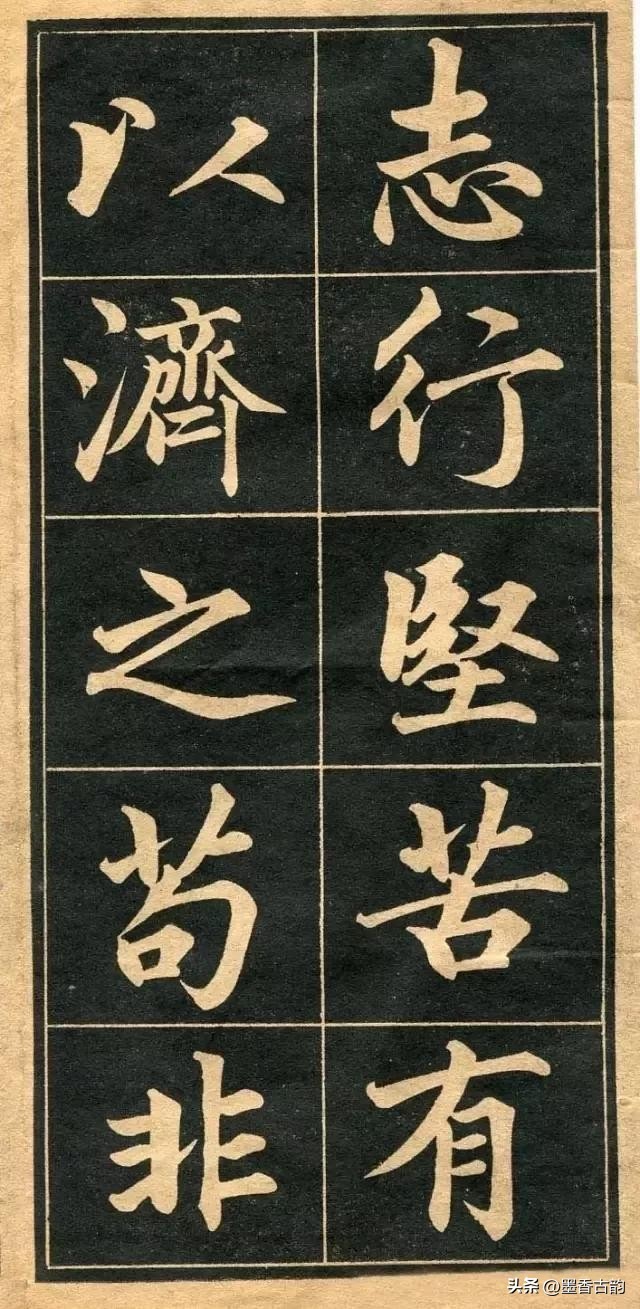 志行堅苦有
以濟之苟非
头条 @墨香古韵